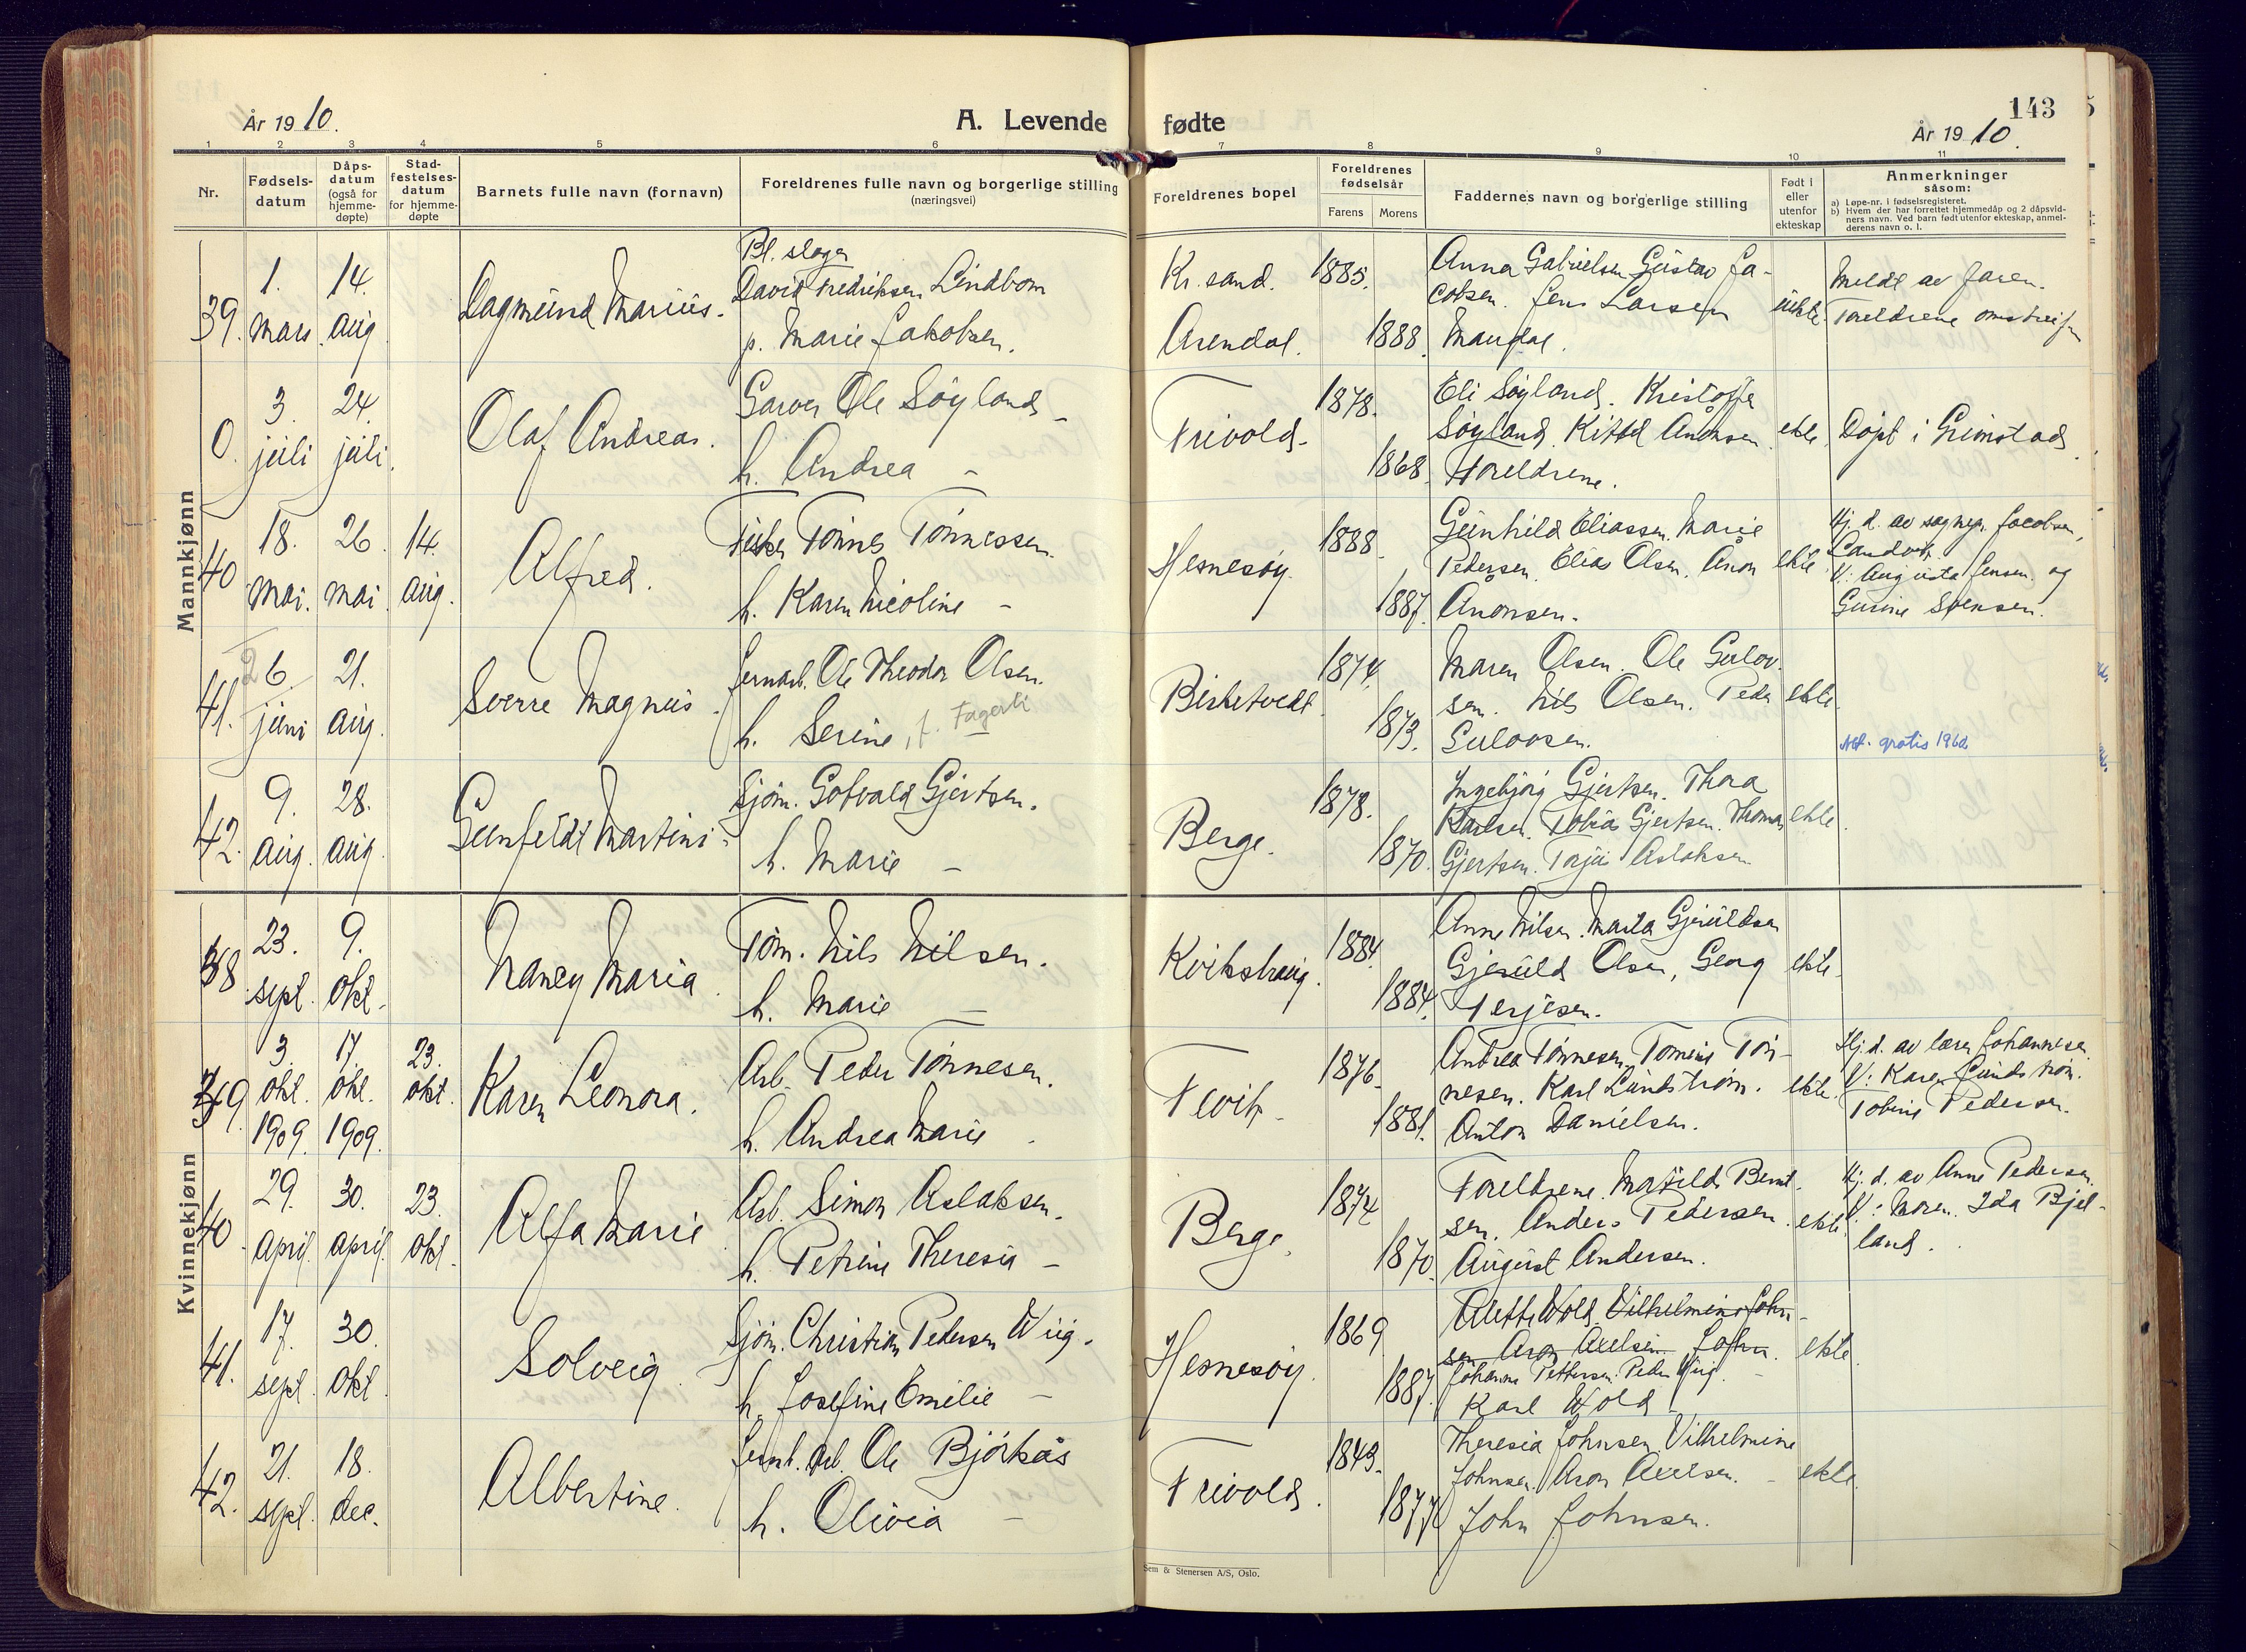 År 1910.
A. Levende
fødte
143
År 1910.
1 2 3 4 5 6 7 8 9 10 11
Nr.
Fødsels-
datum
Dåps-
datum
(også for
hjemme-
døpte)
Stad-
festelses-
datum
for hjemme-
døpte
Barnets fulle navn (fornavn)
Foreldrenes fulle navn og borgerlige stilling
(næringsvei)
Foreldrenes bopel
Foreldrenes
fødselsår
Farens Morens
Faddernes navn og borgerlige stilling
Født i
eller
utenfor
ekteskap
Anmerkninger
såsom:
a) Løpe-nr. i fødselsregisteret.
b) Hvem der har forrettet hjemmedåp og 2 dåpsvid-
ners navn. Ved barn født utenfor ekteskap, anmel-
derens navn o. l.
Mannkjønn
39.
1.
mars.
14.
aug
Dagmund Marius.
Bl. slager
David Fredriksen Lindbom
p. Marie Jakobsen.
Kr. sand.
Arendal.
1885.
1888.
Anna Gabrielsen Gustav Ja-
cobsen. Jens Larsen
Mandal.
uekte.
Meldt av faren.
Foreldrene omstreifere
0.
3
juli
24.
juli.
Olaf Andreas.
Garver Ole Søyland -
h. Andrea -
Frivold.
1878.
1868
Eli Søyland. Kristoffer
Søyland. Kittel Anonsen
Foreldrene.
ekte
Døpt i Grimstad
40
18.
mai.
26.
mai
14.
aug.
Alfred.
Fisker Tønnes Tønnessen.
h. Karen Nicoline -
Hesnesøy.
1888.
1887.
Gunhild Eliassen. Marie
Pedersen. Elias Olsen. Anon
Anonsen.
ekte
Hj. d. av sognepr. Jacobsen,
Landvik.
V: Augusta Jensen og
Gurine Svensen.
41.
26.
juni
21.
aug.
Sverre Magnus.
Jernarb. Ole Theodor Olsen.
h. Serine, f. Fagerli
Birketvedt
1874.
1873.
Maren Olsen. Ole Gulov-
sen. Nils Olsen. Peder
Gulovsen.
ekte
Att. gratis 1960
42.
9.
aug.
28.
aug.
Gunfeldt Martini-
Sjøm. Gotvald Gjertsen.
h. Marie -
Berge.
1878.
1870.
Ingebjørg Gjertsen. Thora
Karlsen. Tobias Gjertsen. Thomas
Gjertsen. Terju Aslaksen
ekte
Kvinnekjønn
38
23.
sept.
9.
Okt.
Nancy Maria
Tøm. Nils Nilsen.
h. Marie -
Kvikshaug.
1884.
1884.
Anne Nilsen. Marta Gjeruldsen
Gjeruld Olsen, Georg
Terjesen.
ekte
39.
3.
okt.
1909.
17.
okt.
1909.
23.
okt.
Karen Leonora.
Arb. Peder Tønnesen.
h. Andrea Marie
Fevik
1876.
1881.
Andrea Tønnesen, Tomine Tøn-
nesen. Karl Lundstrøm.
Anton Danielsen.
ekte.
Hj. d. av lærer Johannesen.
V: Karen Lundstrøm.
Tobine Pedersen.
40
29.
april.
30.
april
23.
okt.
Alfa Marie
Arb. Simon Aslaksen.
h. Petrine Theresia -
Berge.
1874
1870.
Foreldrene. Matilde Bernt-
sen. Anders Pedersen.
August Andersen.
ekte
Hj. d. av Anne Pedersen.
V.: Maren. Ida Bjel-
land.
41.
17.
sept.
30.
okt
Solveig
Sjøm. Christian Pedersen Wiig.
h. Josefine Emilie -
Hesnesøy.
1869
1887.
Alette Wold. Vilhelmine John-
sen Aron Axelsen. John
Johanne Pettersen. Peder Wiig.
Karl Wold
ekte
42.
21.
sept.
18.
dec.
Albertine.
Jernb. arb. Ole Bjørkås
h. Olivia -
Frivold.
1843.
1877
Theresia Johnsen. Vilhelmine
Johnsen. Aron Axelsen.
John Johnsen.
ekte
Sem & Stenersen A/S, Oslo.